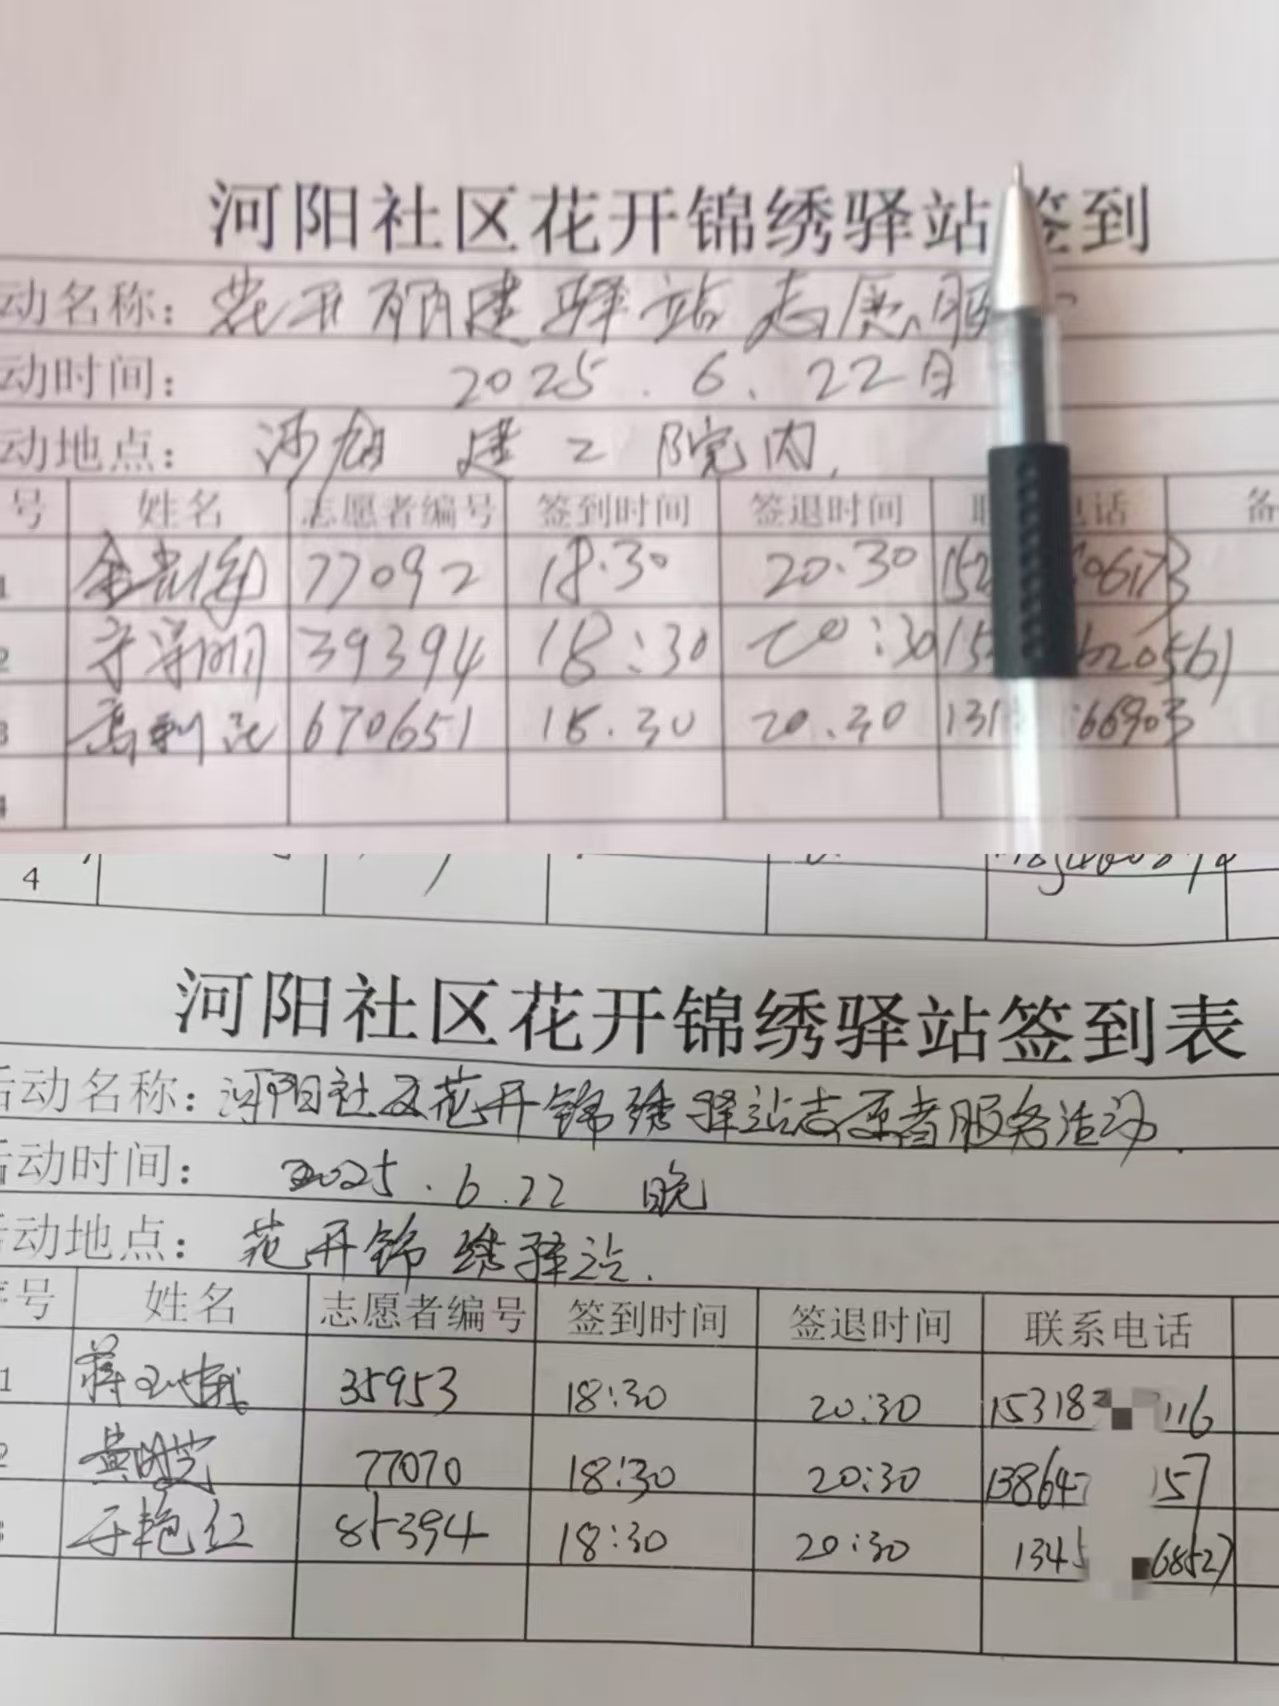 河阳社区花开锦绣驿站签到
动名称：花开 建驿站志愿服
动时间： 2025.6.22日
动地点： 建工院内.
号 姓名 志愿者编号 签到时间 签退时间 联 电话 备
1 77092 18.30 20.30 152 06173
2 39394 18:30 20:30 15 620561
3 高利 670651 18.30 20.30 131 66903
4
4
河阳社区花开锦绣驿站签到表
活动名称：河阳社区花开锦绣驿站志愿者服务活动.
活动时间： 2025.6.22 晚
活动地点： 花开锦绣驿站.
序号 姓名 志愿者编号 签到时间 签退时间 联系电话
1 蒋 35953 18:30 20:30 15318 116
2 黄 77070 18:30 20:30 13864 157
3 于艳红 85394 18:30 20:30 1345 6852